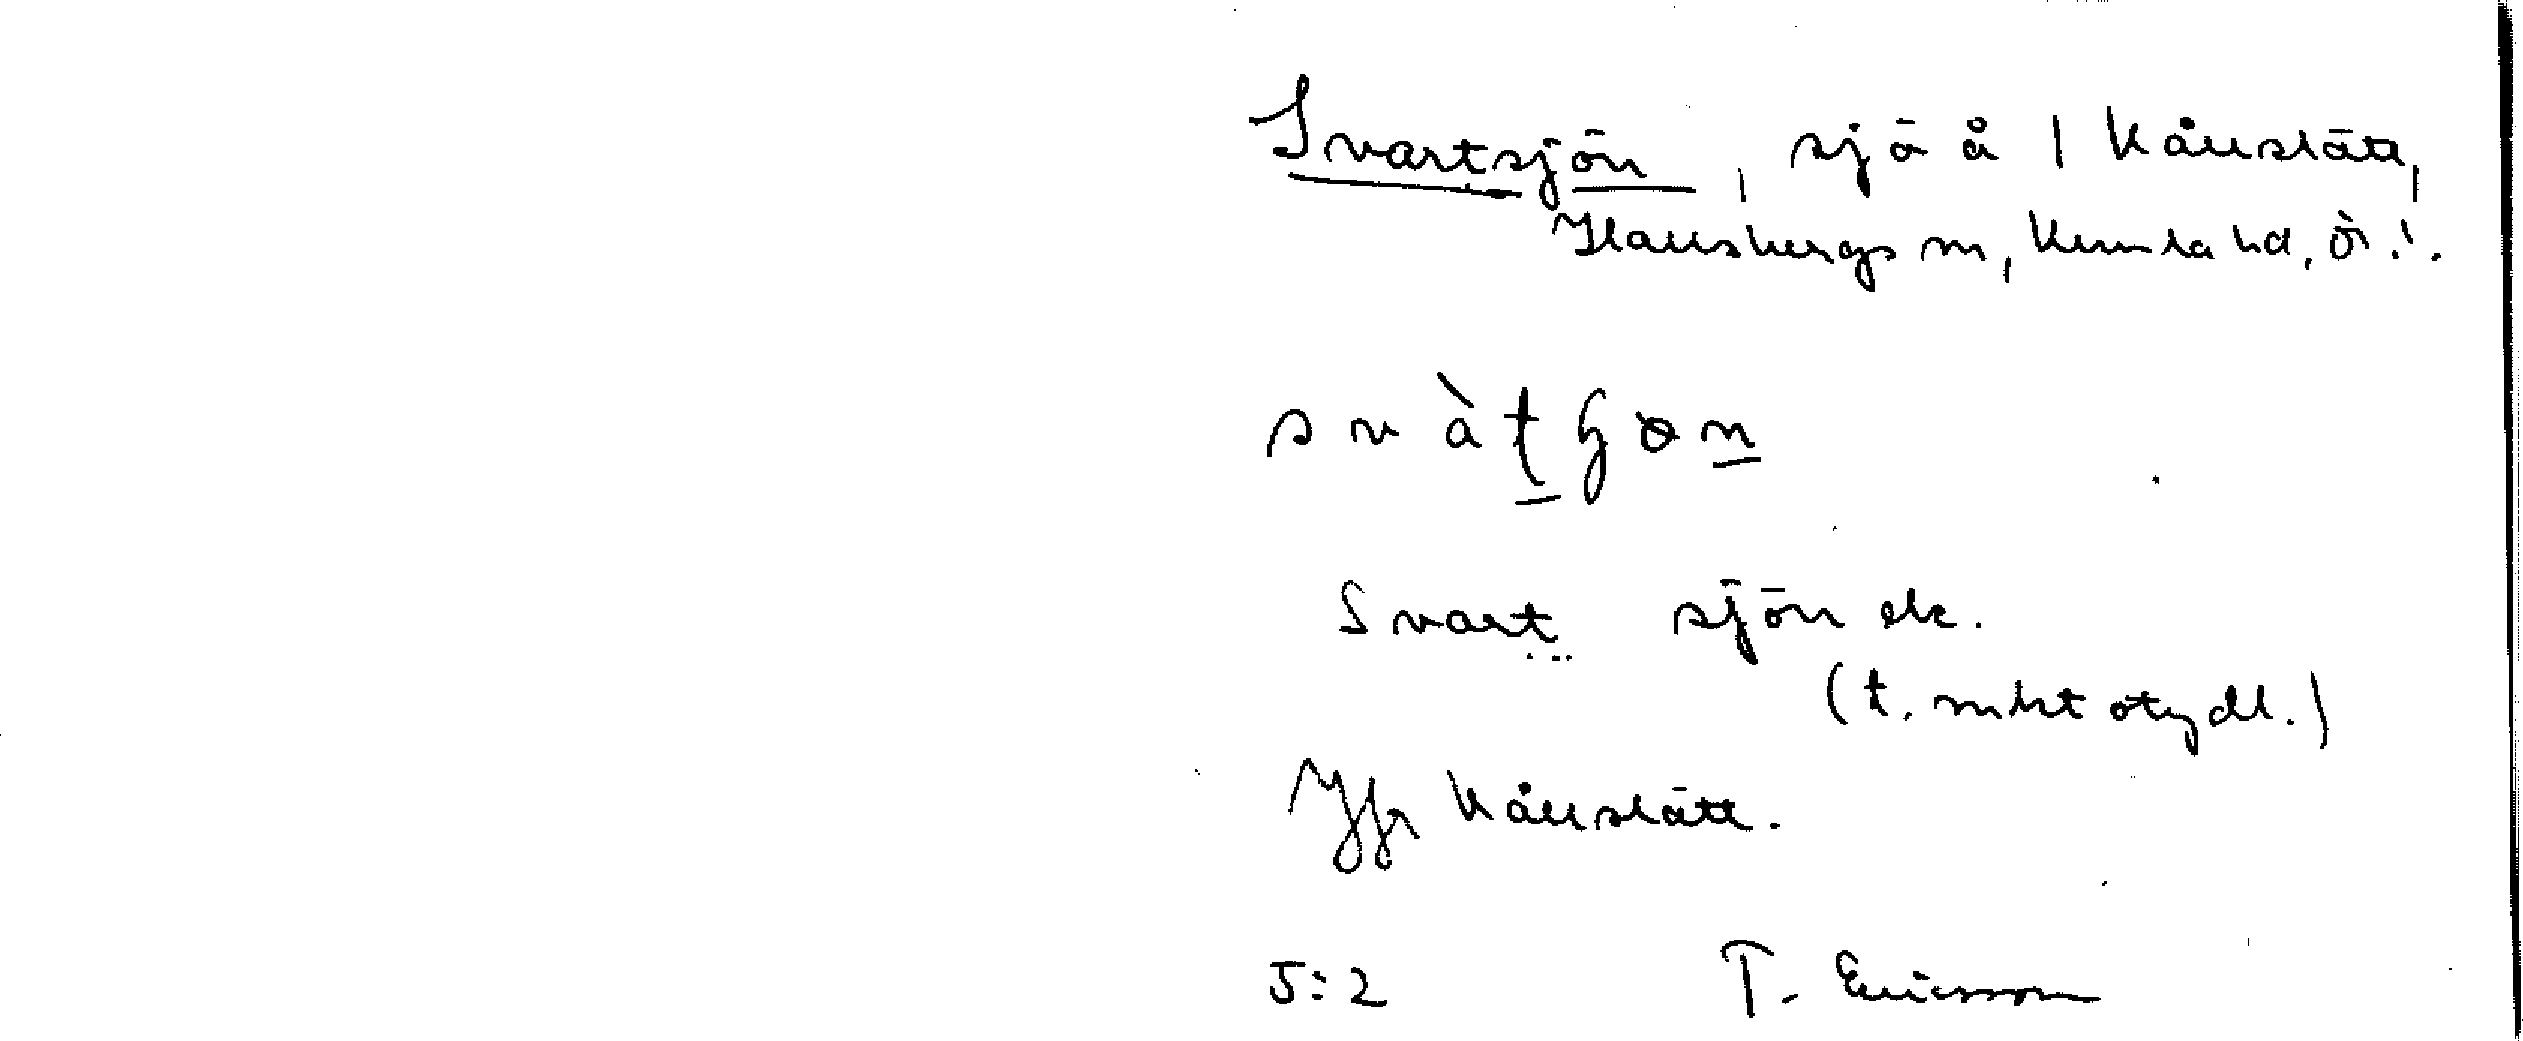 Svartsjön, sjö å 1 Kånslätt,
Hallsbergs sn, Kumla hd, ör. l.
svàt ön
Svart sjön etc.
(t. mkt otydl.)
Jfr Kånslätt.
5:2 T. Ericsson